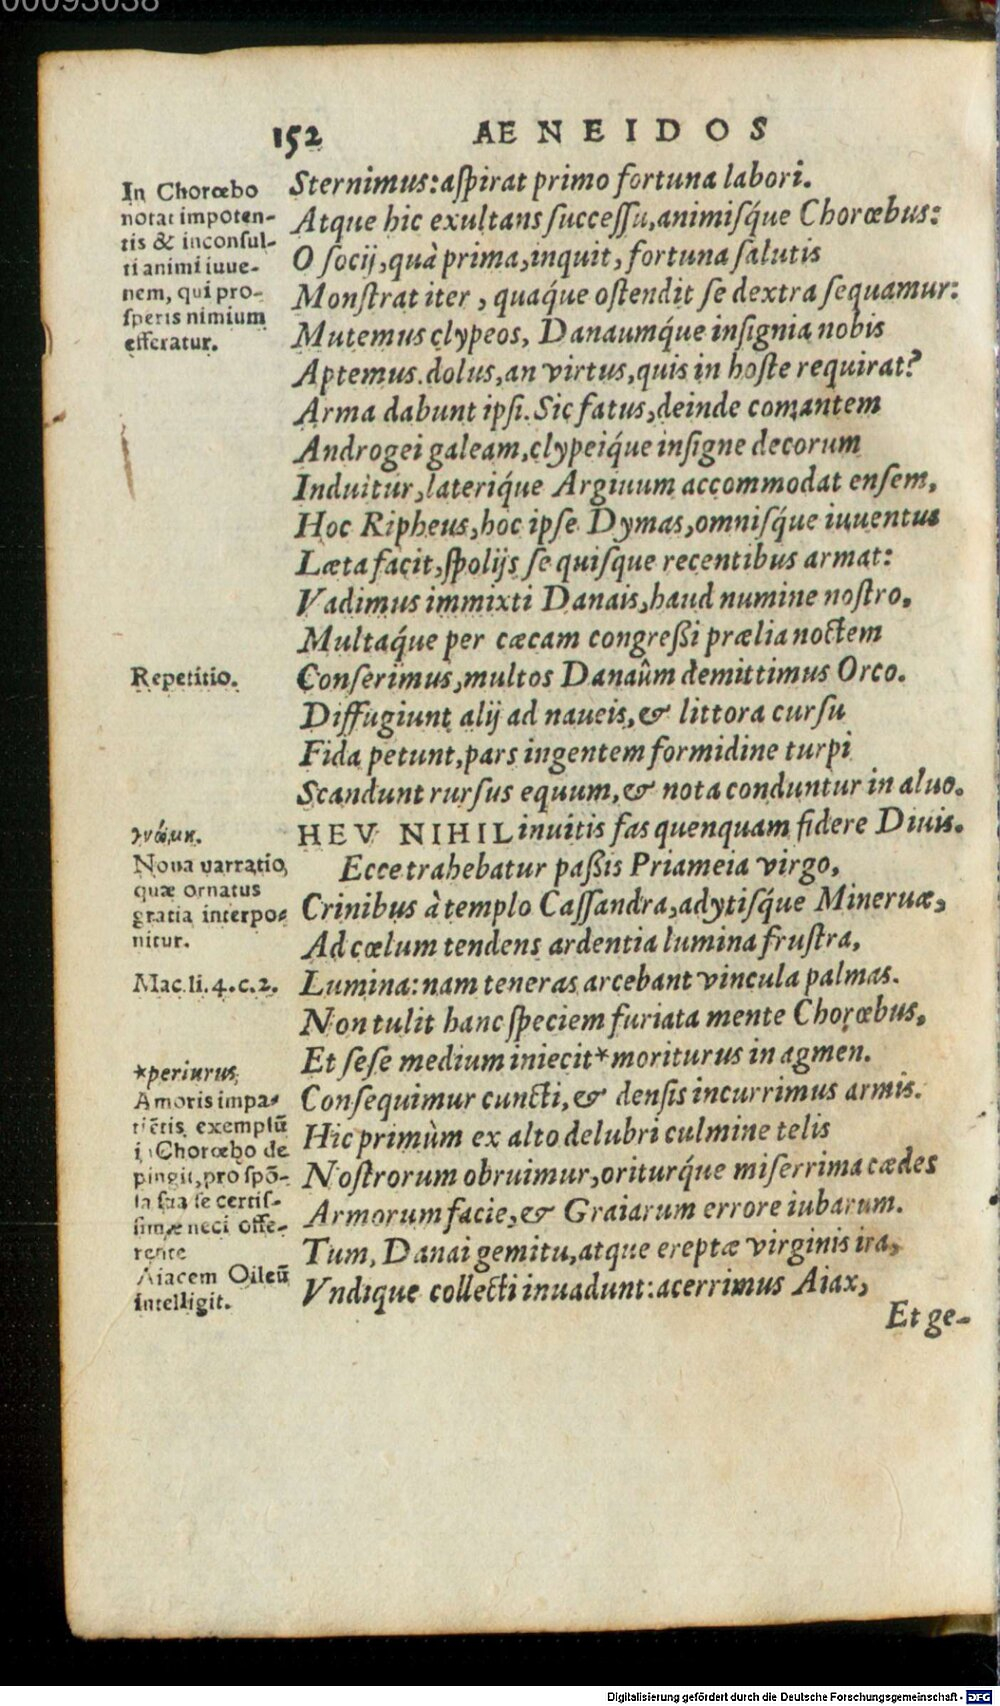 00093038
152 AENEIDOS
In Chorœbo
notat impoten-
tis & inconsul-
ti animi iuue-
nem, qui pro-
speris nimium
efferatur.
Sternimus: aſpirat primo fortuna labori.
Atque hic exultans ſucceſſu, animiſq́ue Chorœbus:
O ſocij, quà prima, inquit, fortuna ſalutis
Monſtrat iter, quaq́ue oſtendit ſe dextra ſequamur:
Mutemus clypeos, Danaumq́ue inſignia nobis
Aptemus. dolus, an virtus, quis in hoſte requirat?
Arma dabunt ipſi. Sic fatus, deinde comantem
Androgei galeam, clypeiq́ue inſigne decorum
Induitur, lateriq́ue Argiuum accommodat enſem,
Hoc Ripheus, hoc ipſe Dymas, omniſq́ue iuuentus
Læta facit, ſpolijs ſe quiſque recentibus armat:
Vadimus immixti Danais, haud numine noſtro,
Multaq́ue per cæcam congreßi prælia noctem
Repetitio.
Conſerimus, multos Danaûm demittimus Orco.
Diffugiunt alij ad naueis, & littora curſu
Fida petunt, pars ingentem formidine turpi
Scandunt rurſus equum, & nota conduntur in aluo.
γνώμη.
HEV NIHIL inuitis fas quenquam fidere Diuis.
Noua uarratio,
quæ ornatus
gratia interpo-
nitur.
Ecce trahebatur paßis Priameia virgo,
Crinibus à templo Caſſandra, adytiſq́ue Mineruæ,
Ad cœlum tendens ardentia lumina fruſtra,
Mac. li. 4. c. 2.
Lumina: nam teneras arcebant vincula palmas.
Non tulit hanc ſpeciem furiata mente Chorœbus,
Et ſeſe medium iniecit * moriturus in agmen.
*periurus
Amoris impa-
tiẽtis exemplũ
i Chorœbo de
pingit, pro ſpõ-
ſa ſua ſe certiſ-
ſimæ neci offe-
rente
Aiacem Oileũ
intelligit.
Conſequimur cuncti, & denſis incurrimus armis.
Hic primùm ex alto delubri culmine telis
Noſtrorum obruimur, oriturq́ue miſerrima cædes
Armorum facie, & Graiarum errore iubarum.
Tum, Danai gemitu, atque ereptæ virginis ira,
Vndique collecti inuadunt: acerrimus Aiax,
Et ge-
Digitalisierung gefördert durch die Deutsche Forschungsgemeinschaft - DFG